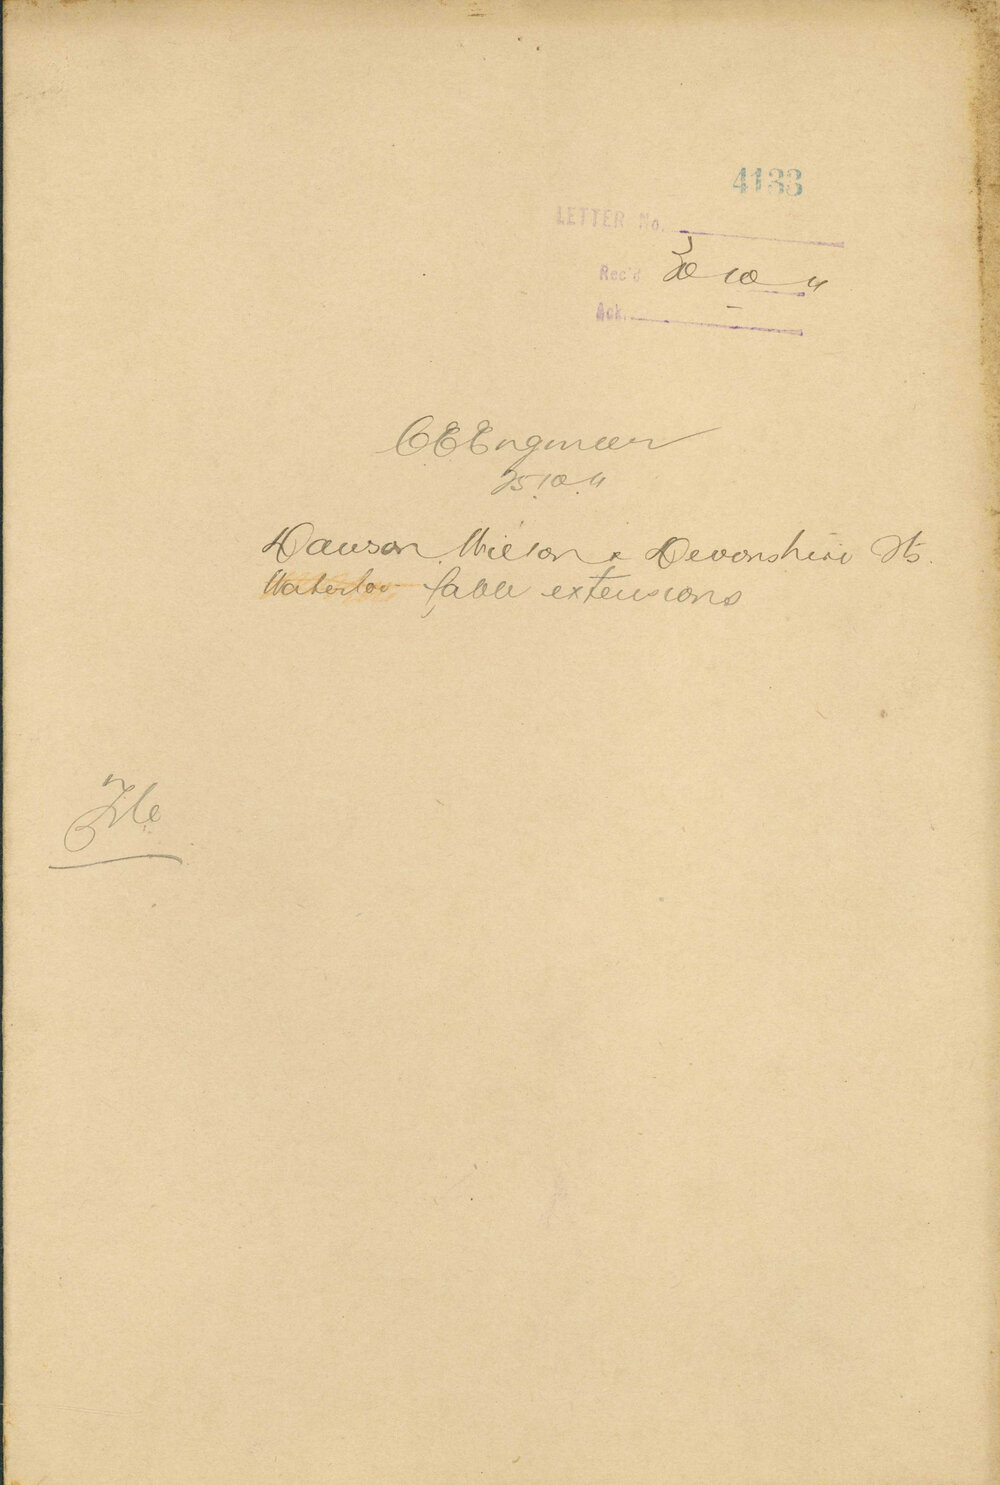 4133
LETTER No.
Rec'd 30 10 11
Ack. –
C E Engineer
25.10.11
Dawson Wilson & Devonshire Sts.
Waterloo Cable extensions
File